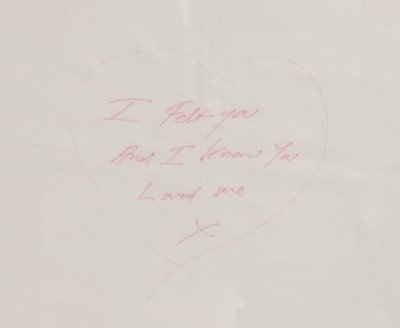 I Felt you
And I Know You
Loved me
X